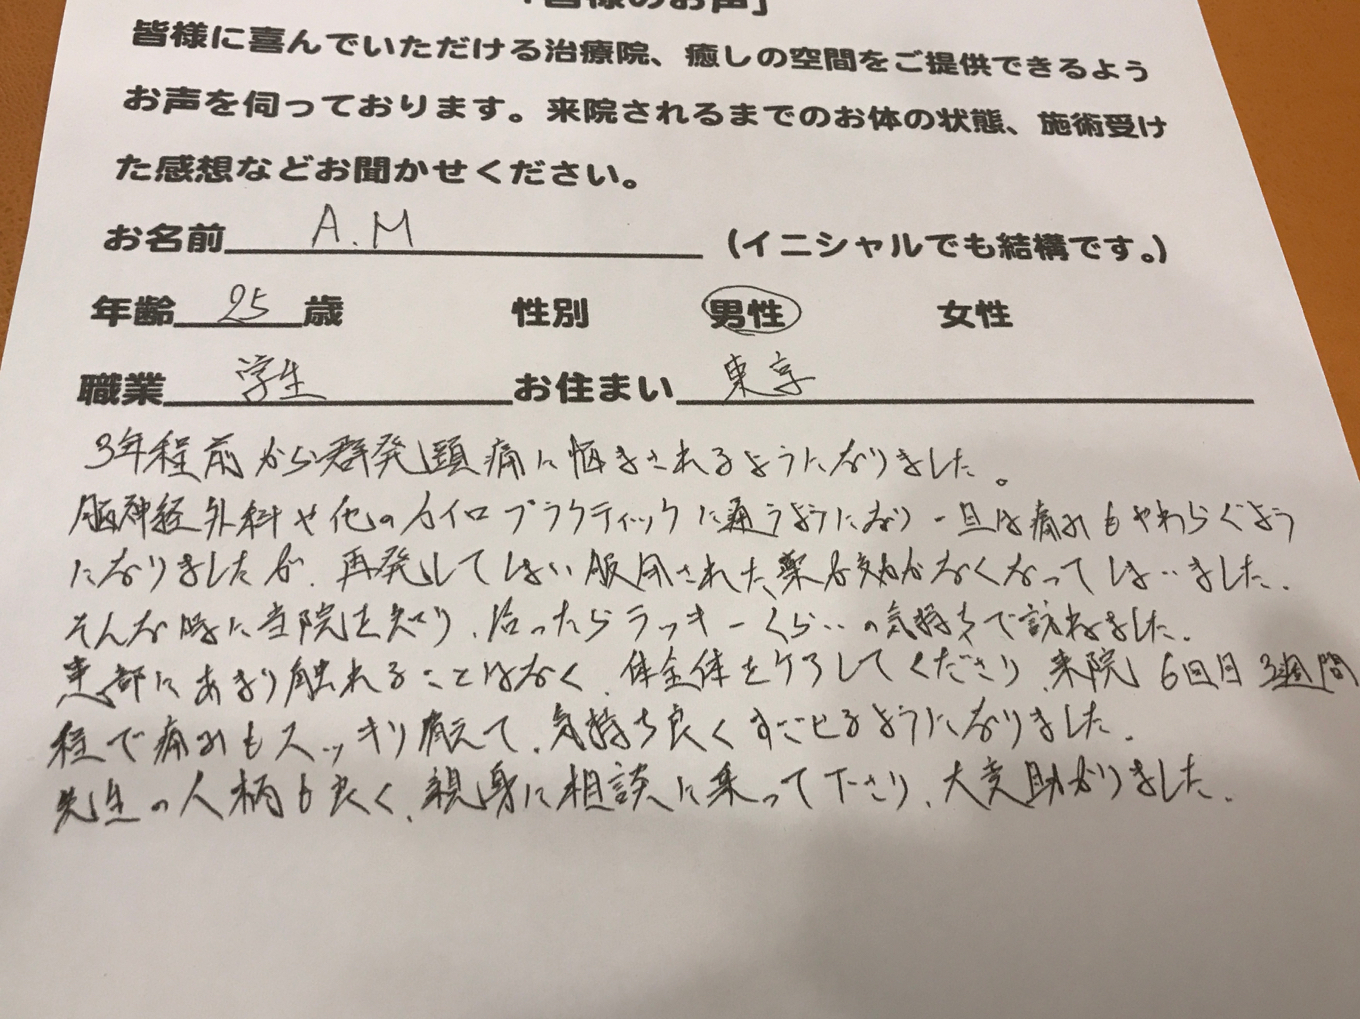 「皆様のお声」
皆様に喜んでいただける治療院、癒しの空間をご提供できるよう
お声を伺っております。来院されるまでのお体の状態、施術受け
た感想などお聞かせください。
お名前 A.M (イニシャルでも結構です。)
年齢 25 歳 性別 男性 女性
職業 学生 お住まい 東京
3年程前から群発頭痛に悩まされるようになりました。
脳神経外科や他のカイロプラクティックに通うようになり一旦は痛みもやわらぐよう
になりましたが、再発してしまい服用された薬も効かなくなってしまいました。
そんな時に当院を知り、治ったらラッキーくらいの気持ちで訪ねました。
患部にあまり触れることはなく、体全体をケアしてくださり、来院し6回目3週間
程で痛みもスッキリ消えて、気持ち良くすごせるようになりました。
先生の人柄も良く、親身に相談に乗って下さり、大変助かりました。